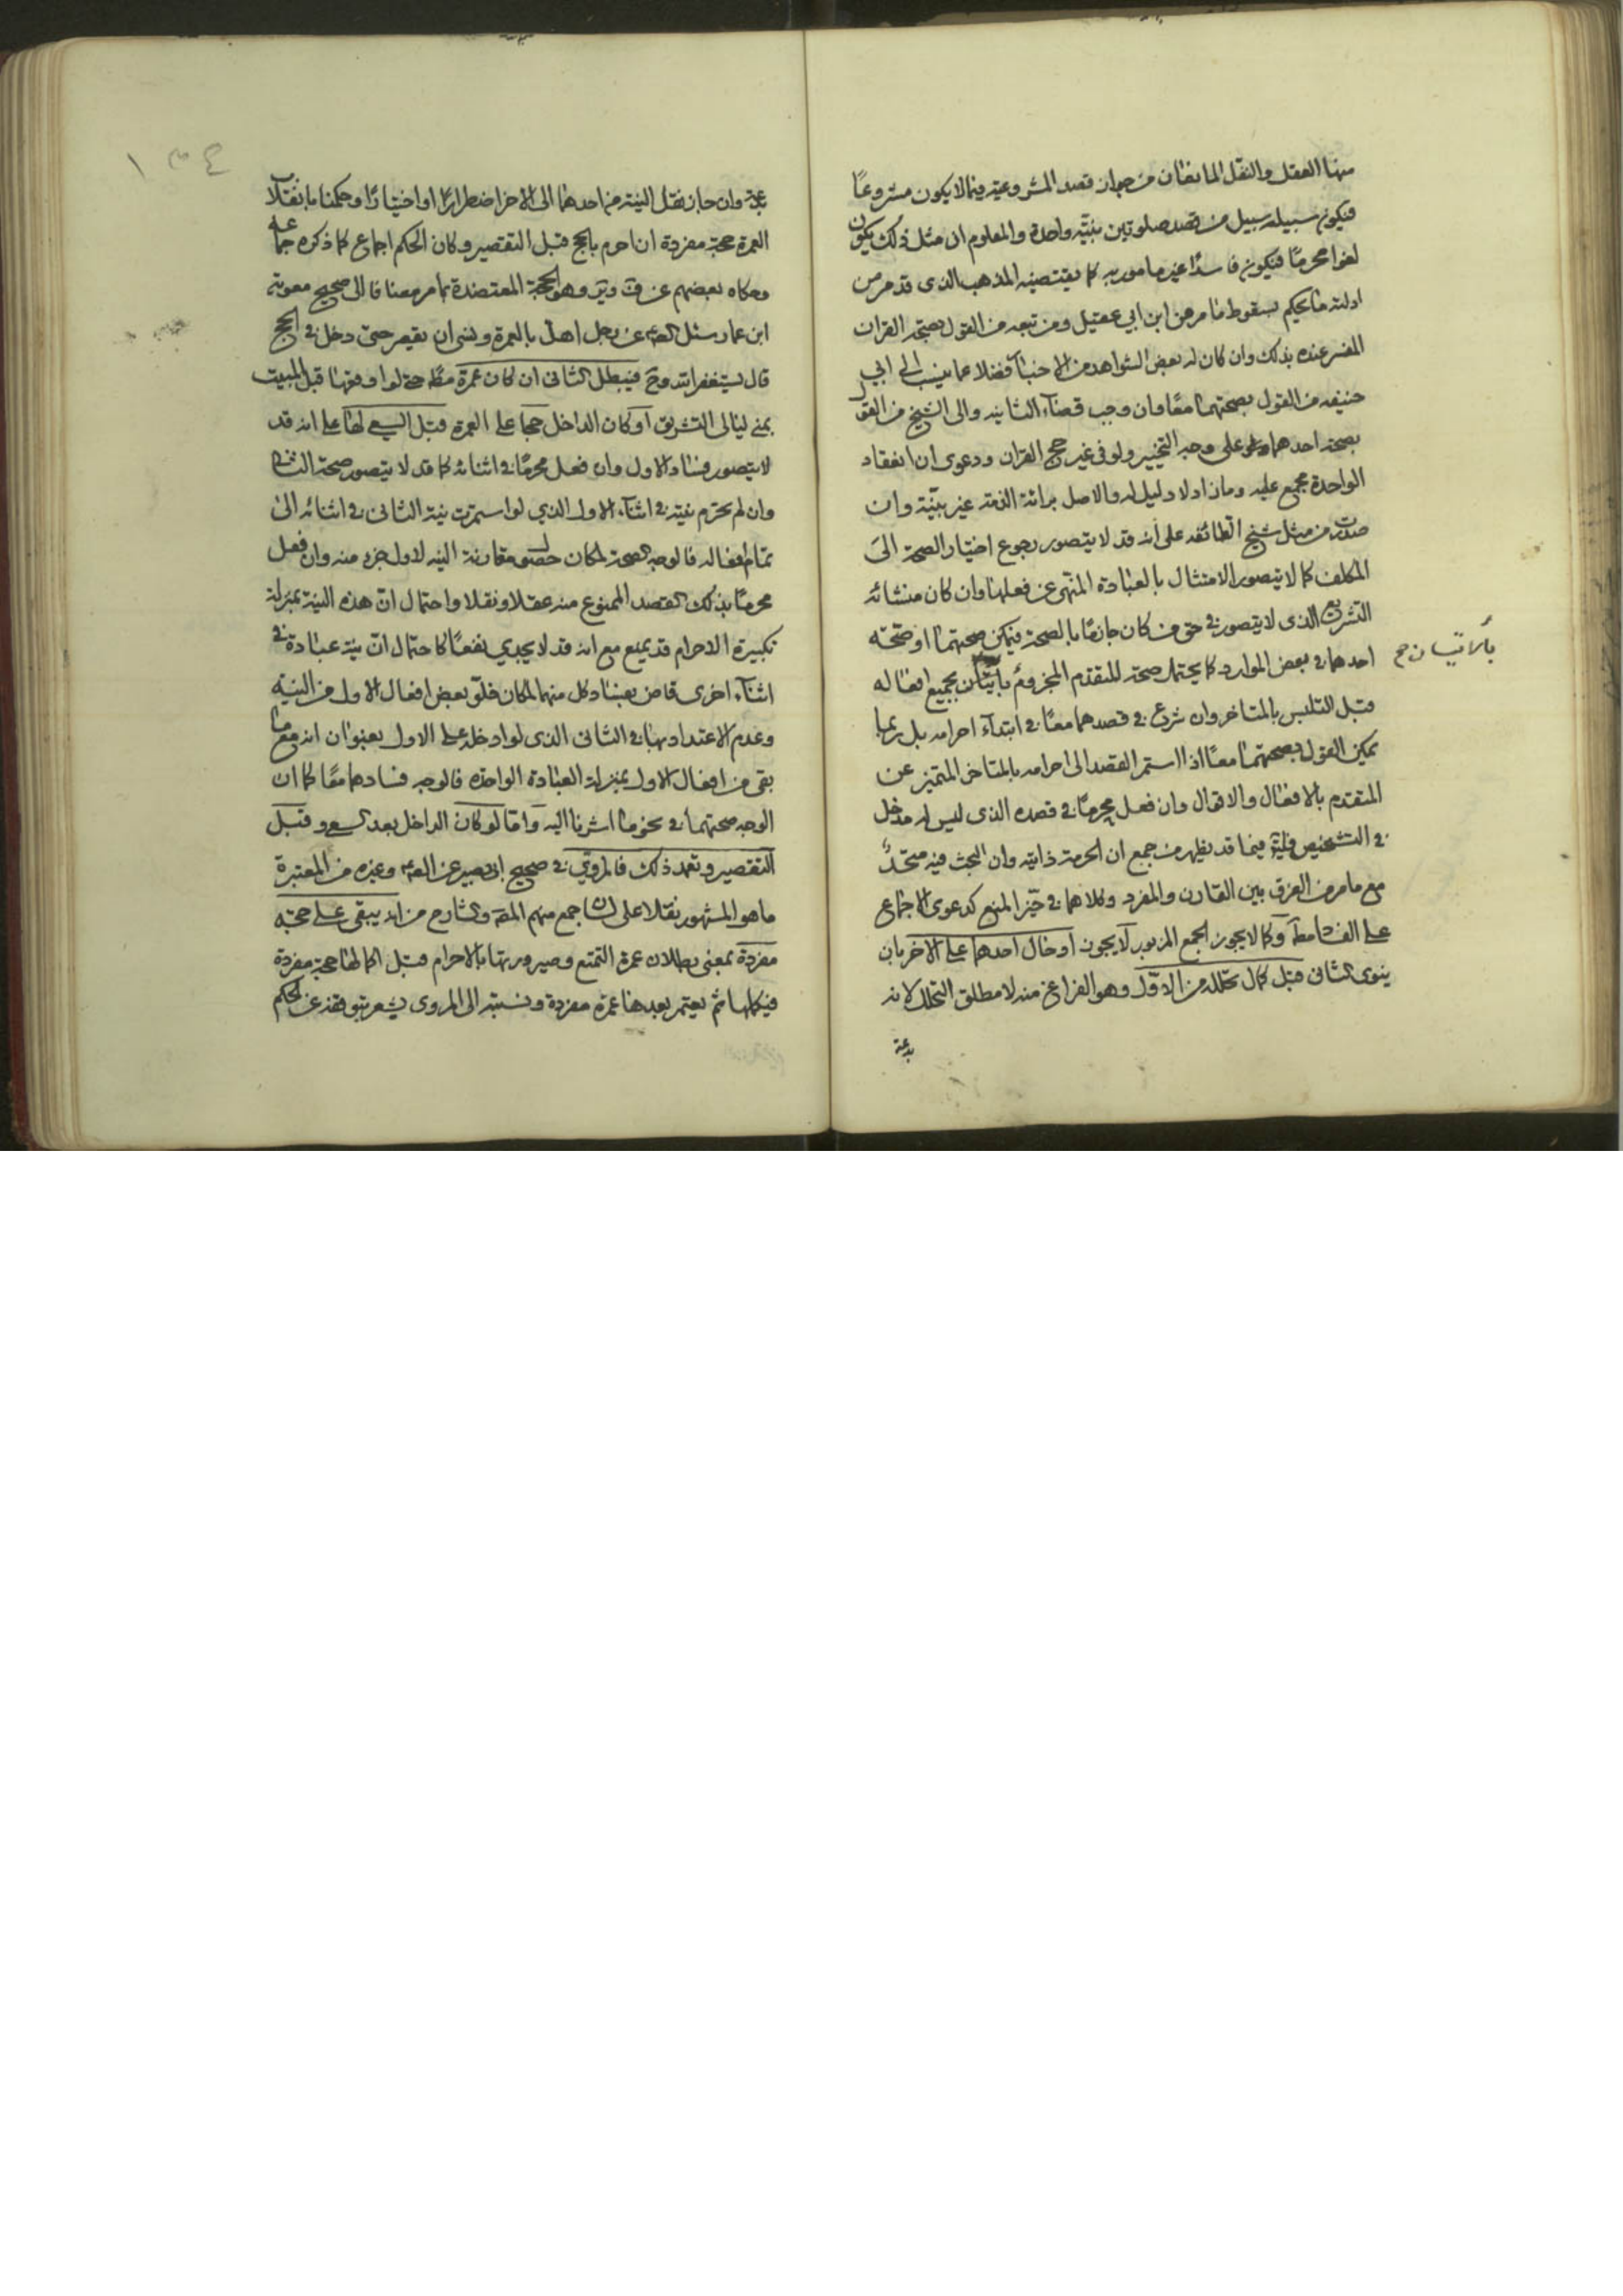 منها العقل والنقل المانعان من جواز قصد المشروعية فيما لا يكون مشروعًا
فيكون سبيله سبيل من قصد صلوتين بنيّة واحدة والمعلوم ان مثل ذلك يكون
لغوا محرمًا فيكون فاسدًا غير مامور به كما يقتضيه المذهب الذى قد مر من
ادلته ما يحكم بسقوط ما مر من ابن ابي عقيل ومن تبعه من القول بصحة القران
المفسر عنده بذلك وان كان له بعض الشواهد من الاخبار فضلا عما ينسب الى ابي
حنيفه من القول بصحتهما معًا وان وجب قضاء الثانيه والى الشيخ من القول
بصحة احدهما على وجه التخيير ولو فى غير حج القران ودعوى ان انعقاد
الواحدة مجمع عليه وما زاد لا دليل له والاصل برائة الذمة غير بيّنة وان
صدرت من مثل شيخ الطائفه على أنه قد لا يتصور رجوع اختيار الصحة الى
المكلف كما لا يتصور الامتثال بالعبادة المنهى عن فعلها وان كان منشائه
التشريع الذى لا يتصور فى حق من كان جازمًا بالصحة فيمكن صحتهما او صحّة
احدهما فى بعض الموارد كما يحتمل صحة للمتقدم المجزوم بجميع افعاله
بالاتيان صح
قبل التلبس بالمتاخر وان شرع فى قصدهما معًا فى ابتدآء احرامه بل ربما
يمكن القول بصحتهما معًا اذا استمر القصد الى احرامه بالمتاخر المتميز عن
المتقدم بالافعال والاقوال وان فعل محرمًا فى قصده الذى ليس له مدخل
فى التشخيص فليتأمل فيما قد يظهر من جمع ان الحرمة ذاتية وان البحث فيه متحدٌ
مع ما مر من الفرق بين القارن والمفرد وكلاهما فى حيّز المنع كدعوى الاجماع
على الفساد وكما لا يجوز الجمع المزبور لا يجوز ادخال احدهما على الاخر بان
ينوى الثانى قبل كمال تحلله من الاوّل وهو الفراغ منه لا مطلق التحلل لانه
بدعة
بدعة وان جاز نقل النية من احدهما الى الاخر اضطرارًا او اختيارًا وحكمنا بانقلاب
العمرة حجة مفردة ان احرم بالحج قبل التقصير وكان الحكم اجماع كما ذكره جماعه
وحكاه بعضهم عن وهو الحجة المعتضدة بما مر مضافا الى صحيح معوية
ابن عمار سئل الصادق عن رجل اهلّ بالعمرة ونسى ان يقصر حتى دخل فى الحج
قال يستغفر الله وح فيبطل الثانى ان كان عمرة مطلقا حتى لو اوقعها قبل المبيت
بمنى ليالى التشريق او كان الداخل حجا على العمرة قبل السعى لها على انه قد
لا يتصور فساد الاول وان فعل محرمًا فى اثنائه كما قد لا يتصور صحة الثانى
وان لم يحرم نيته فى اثناء الاول الذي لو استمرت نية الثانى فى اثنائه الى
تمام افعاله فالوجه الصحة لمكان حصول مقارنة النيه لاول جزء منه وان فعل
محرمًا بذلك القصد الممنوع منه عقلا ونقلا واحتمال انّ هذه النية بمنزلة
تكبيرة الاحرام قد يمنع مع انه قد لا يجدي نفعًا كاحتمال انّ نية عبادة فى
اثناء اخرى قاض بفساد كل منهما لمكان خلوّ بعض افعال الاول من النيه
وعدم الاعتداد بها فى الثانى الذى لو ادخله على الاول بعنوان انه مع ما
بقى من افعال الاول بمنزلة العبادة الواحدة فالوجه فسادهما معًا كما ان
الوجه صحتهما فى نحو ما اشرنا اليه وامّا لو كان الداخل بعد السعى وقبل
التقصير وتعمد ذلك فالمروىّ فى صحيح ابى بصير عن الصادق وغيره من المعتبرة
ما هو المشهور نقلا على لسان جمع منهم المص والشارح من انه يبقى على حجّة
مفردة بمعنى بطلان عمرة التمتع وصيرورتها بالاحرام قبل اكمالها حجة مفردة
فيكملها ثم يعتمر بعدها عمرة مفردة ونسبته الى المروى يشعر بتوقفه عن الحكم